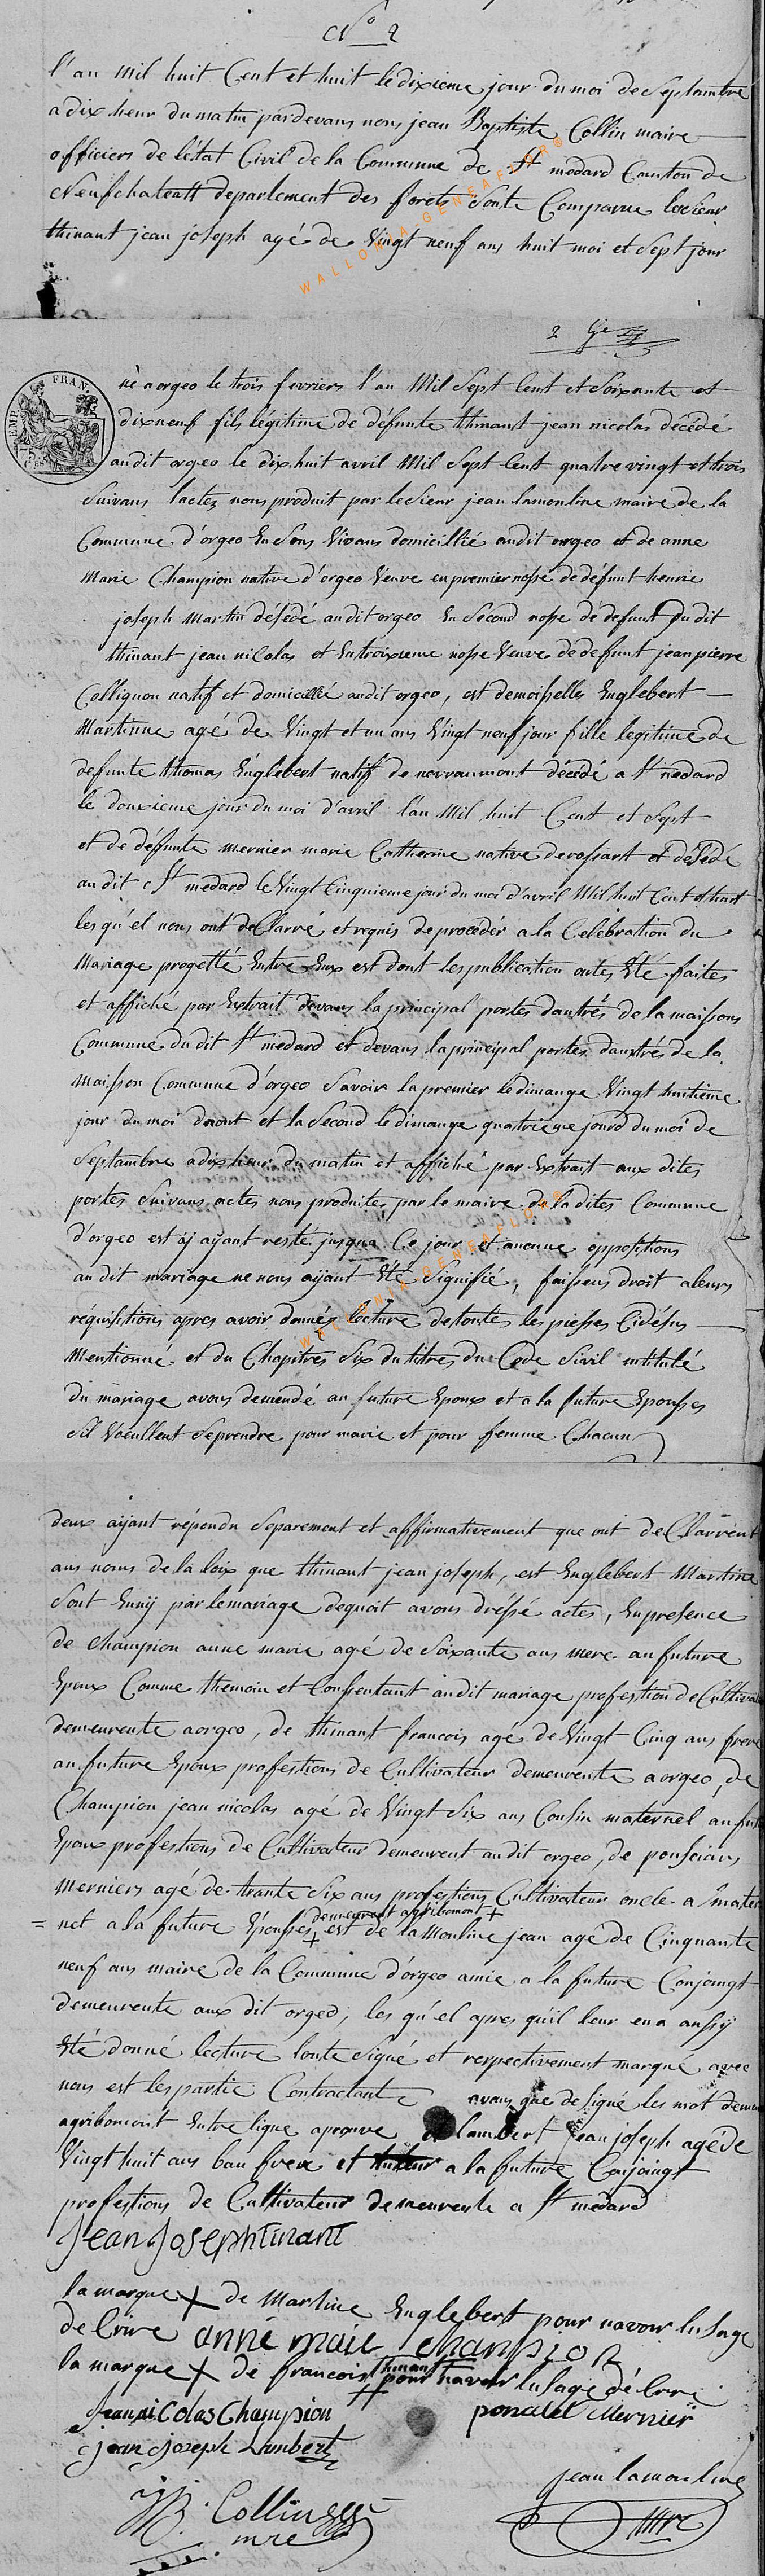 No 2
l'an mil huit Cent et huit le dixieme jour du moi de Septambre
a dix heur du matin pardevans nous jean Baptiste Collin maire
officiers de létat Civil de la Commune de St medard Canton de
Neufchateau departement des forets Sonte Comparue le sieur
thinant jean joseph agé de Vingt neuf ans huit moi et Sept jour
2
né a orgeo le trois fevriers l'an Mil Sept Cent et Soixante et
dixneuf fils légitime de défunte thinant jean nicolas décédé
audit orgeo le dix huit avril Mil Sept Cent quatre vingt et trois
Suivans lactez nous produit par le Sieur jean lamouline maire de la
Commune d'orgeo En Sons Vivans domicillié audit orgeo et de anne
Marie Champion native d'orgeo Veuve en premier nosse de défunt henrie
joseph Martin désédé audit orgeo En Second nosse de defunt Du dit
thinant jean nicolas et Entroixieme nosse Veuve de defunt jean pierre
Collignon natif et domicillié audit orgeo, est demoisselle Englebert
Martinne agé de Vingt et un ans Vingt neuf jour fille legitime de
defunte thomas Englebert natif de nevraumont décédé a St medard
le douxieme jour du moi d'avril l'an Mil huit Cent et Sept
et de défunte mernier marie Catherine native de rossart et désédé
au dit St medard le Vingt Cinquieme jour du moi d'avril Mil huit Cent et huit
les qu'el nous ont deClarré et requis de procédér a la Celebration du
Mariage progetté Entre Eux est dont les publication ontes Eté faites
et affiché par Extrait devans la principal portes dantrés de la maissons
Commune du dit St medard et devans la principal portes dantrés de la
Maisson Commune d'orgeo Savoir la premier le dimange Vingt huitieme
jour du moi daout et la Second le dimange quatrieme jourd du moi de
Septambre a dix heur du matin et affiché par Extrait aux dites
portes Suivans actes nous produites par le maire de la dites Commune
d'orgeo est aj ajant resté jusqua Ce jour et aucune oppositions
au dit mariage ne nous aijant Eté Signifié, faissens droit a leurs
réquisitions apres avoir donnéz lecture de toutes les piesses Cidésus
Mentionné et du Chapitres Six du titres du Code Sivil intitulé
du mariage avons demendé au future Epoux et a la future Epousses
Sil Voeullent Seprendre pour marie et pour femme Chacun
deux aijant répondu Separement et affirmativement que ont deClarrent
aus noms de la loix que thinant jean joseph, est Englebert Martine
Sont Eunij par le mariage dequoit avons dréssé actes, En presence
de Champion anne marie agé de Soixante ans mere au future
Epoux Comme themoin et Consentant audit mariage profestion de Cultivateur
demeurente a orgeo, de thinant francois agé de Vingt Cinq ans frere
au future Epoux profestions de Cultivateur demeurente a orgeo, de
Champion jean nicolas agé de Vingt Six ans Cousin maternel au future
Epoux profestions de Cultivateur demeurent audit orgeo, de
Merniers agé de trante Six ans profestions Cultivateur oncle mater
demeurent agribomont +
= nel a la future Epousses + est de la Mouline jean agé de Cinquante
neuf ans maire de la Commune d'orgeo amie a la future Conjoingt
demeurente aux dit orgeo, les qu'el apres quil leur en a aussy
Eté donné lecture lonte Signé et respectivement marqué avec
nous est les partie Contractante avans que de Signé les mot demeurent
agribomont Entre ligne aprouve lambert jean joseph agé de
Vingt huit ans bau frere et a la future Conjoingt
profestions de Cultivateur demeurente a St medard
Jean Joseph tinant
la marque + de Martine Englebert pour navoir lusage
de Crire anne marie champion
la marque + de francois thinant pour navoir lusage dé Crire
Jean niColas Champion poncelet Mernier
jean joseph Lambert
jean lamouline
JB. Collin
mre mre
EMP. FRAN.
75
WALLONIA.GENEAFLOR®
WALLONIA.GENEAFLOR®